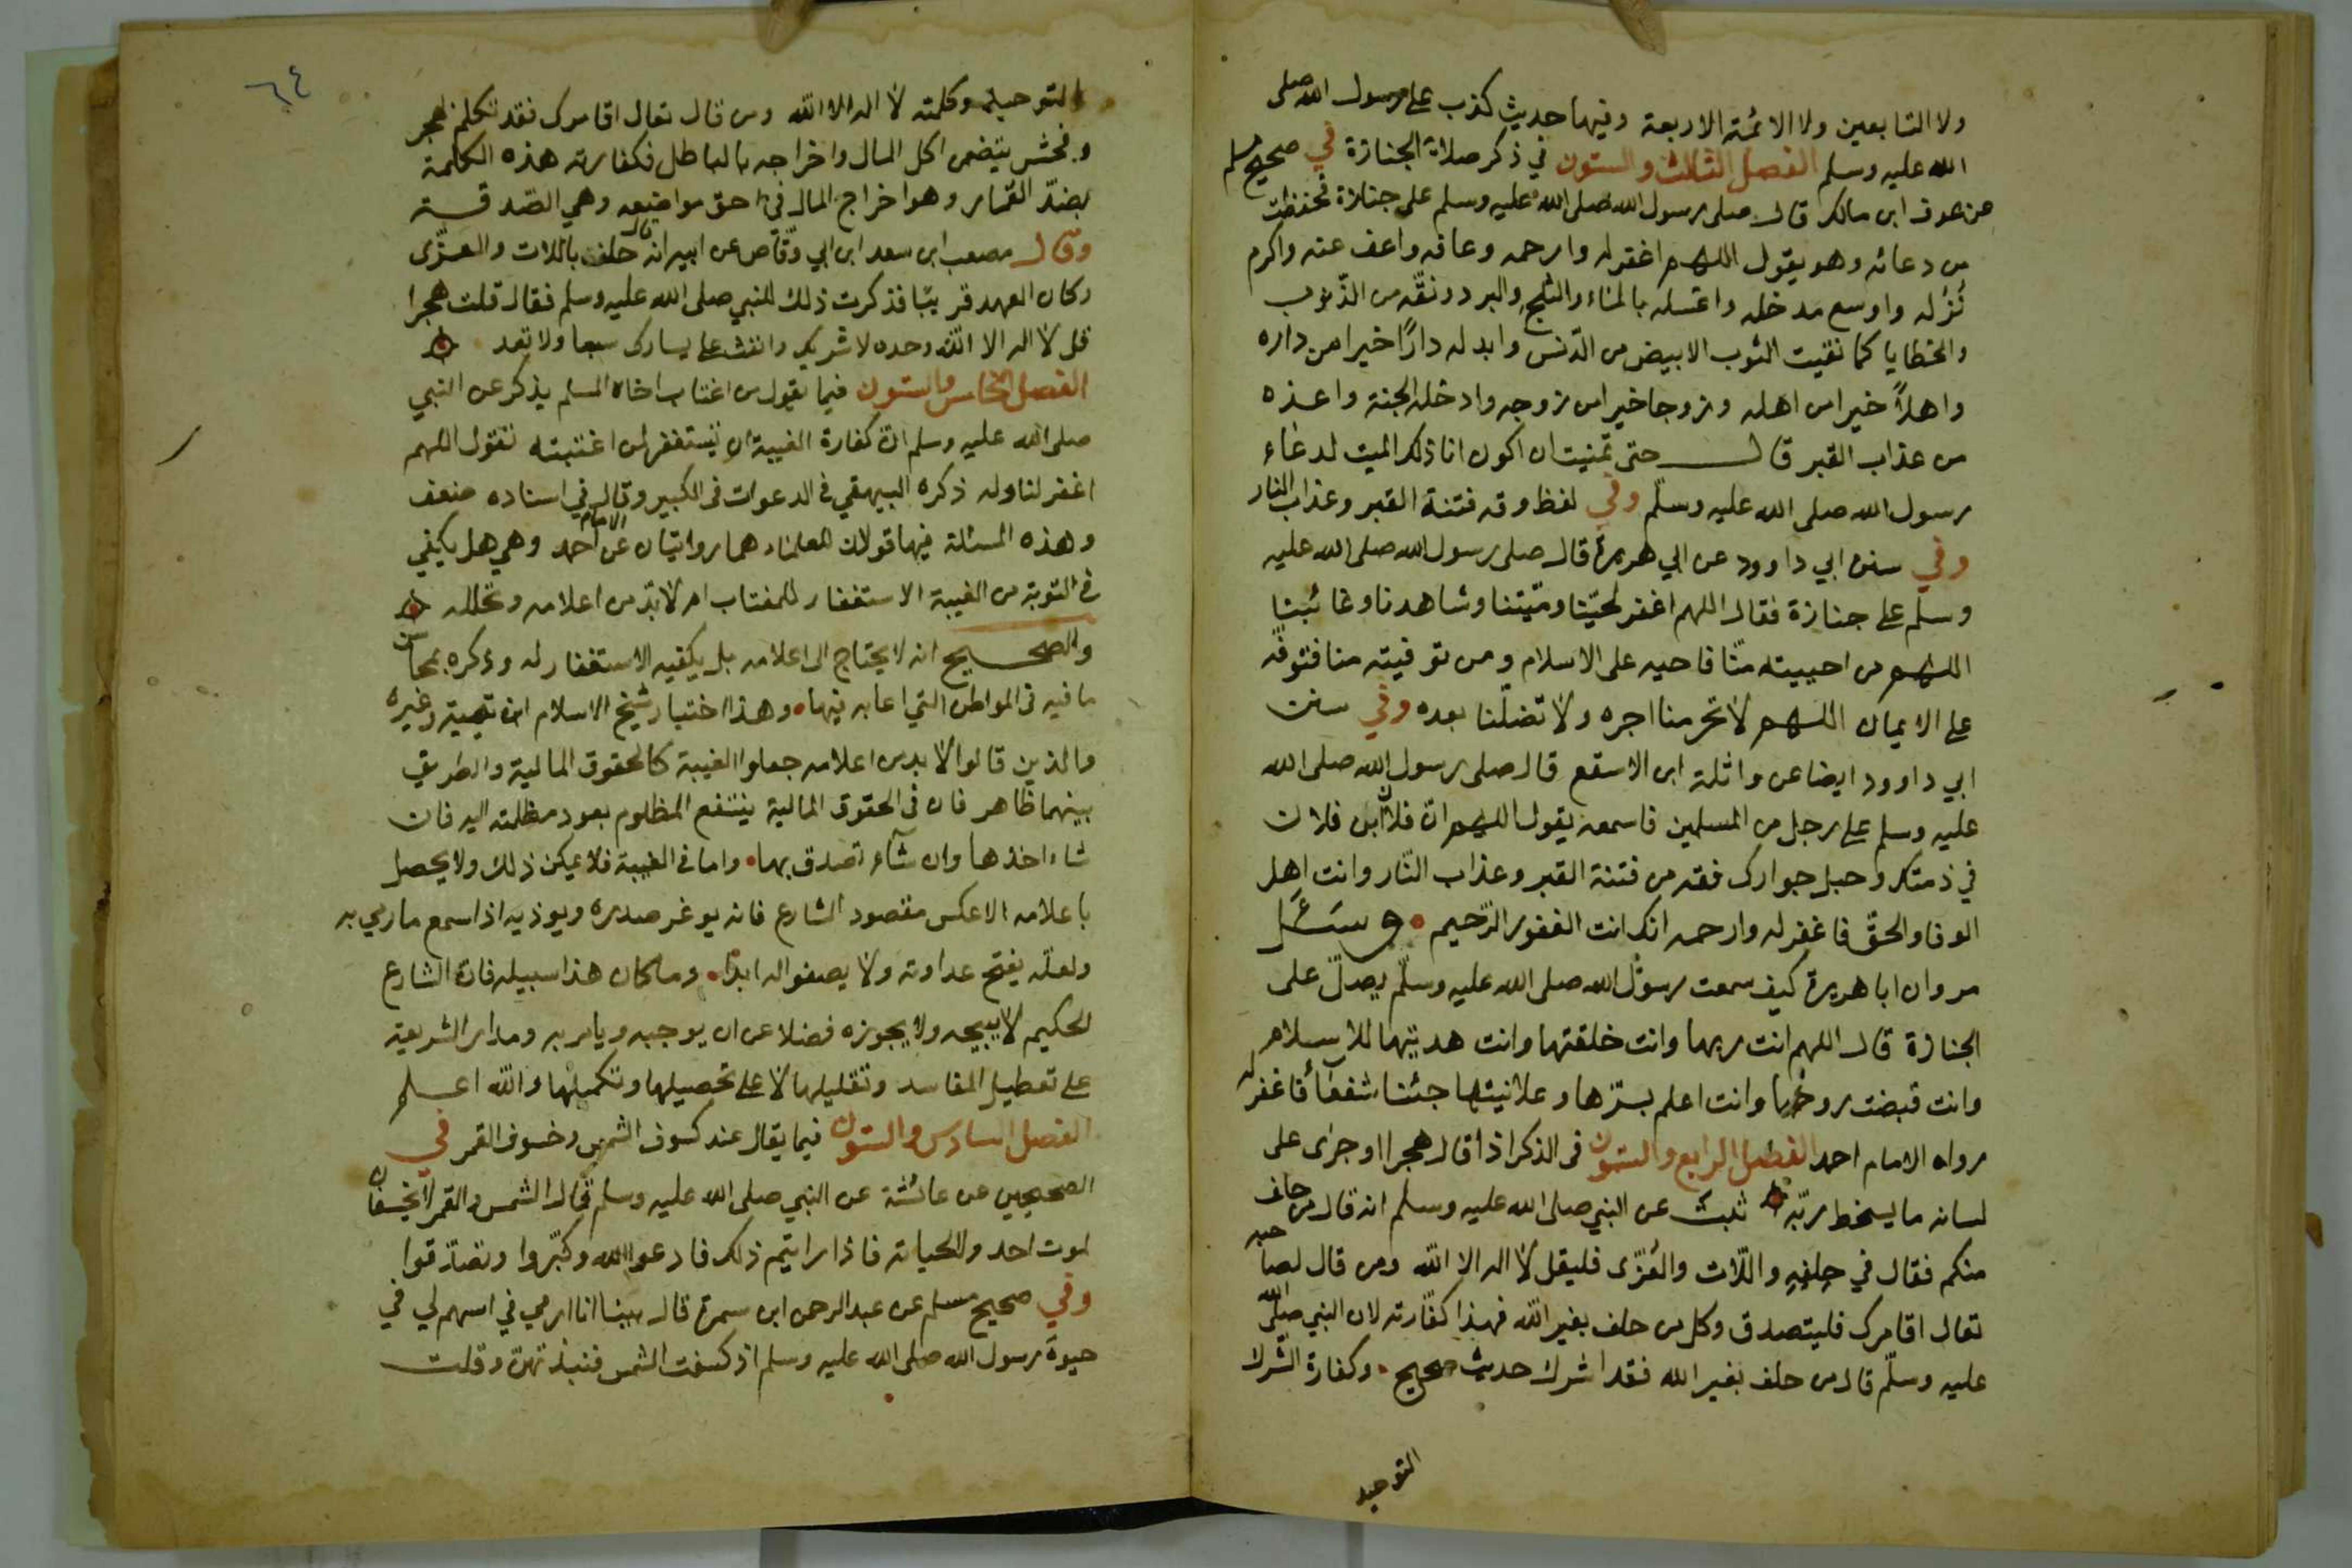 ولا التابعين ولا الائمة الاربعة وفيها حديث كذب على رسول الله صلى
الله عليه وسلم الفصل الثالث والستون في ذكر صلاة الجنازة في صحيح مسلم
عن عوف ابن مالك قال صلى رسول الله صلى الله عليه وسلم على جنازة فحفظت
من دعائه وهو يقول اللهم اغفر له وارحمه وعافه واعف عنه واكرم
نُزُله واوسع مدخله واغسله بالماء والثلج والبرد ونقّه من الذّنوب
والخطايا كما نقيت الثوب الابيض من الدّنس وابدله دارًا خيرا من داره
واهلاً خيرا من اهله وزوجا خيرا من زوجه وادخله الجنة واعذه
من عذاب القبر قال حتى تمنيت ان اكون انا ذلك الميت لدعاء
رسول الله صلى الله عليه وسلّم وفي لفظ وقه فتنة القبر وعذاب النار
وفي سنن ابي داوود عن ابي هريرة قال صلى رسول الله صلى الله عليه
وسلّم على جنازة فقال اللهم اغفر لحيّنا وميّتنا وشاهدنا وغائبنا
اللهم من احييته منّا فاحيه على الاسلام ومن توفيته منا فتوفّه
على الايمان اللهم لا تحرمنا اجره ولا تضلّنا بعده وفي سنن
ابي داوود ايضا عن واثلة ابن الاسقع قال صلى رسول الله صلى الله
عليه وسلم على رجل من المسلمين فاسمعه يقول اللهم انّ فلان ابن فلان
في ذمتك وحبل جوارك فقه من فتنة القبر وعذاب النّار وانت اهل
الوفا والحقّ فاغفر له وارحمه انك انت الغفور الرّحيم • وسئل
مروان ابا هريرة كيف سمعت رسول الله صلى الله عليه وسلّم يصلّ على
الجنازة قال اللهم انت ربها وانت خلقتها وانت هديتها للاسلام
وانت قبضت روحها وانت اعلم بسرّها وعلانيتها جئنا شفعاً فاغفر له
رواه الامام احمد الفصل الرابع والستون في الذكر اذا قال هجرا او جرى على
لسانه ما يسخط ربّه ثبت عن النبي صلى الله عليه وسلم انه قال من حلف
منكم فقال في حلفه واللّات والعُزّى فليقل لا اله الا الله ومن قال لصاحبه
تعال اقامرك فليتصدق وكل من حلف بغير الله فهذا كفّارته لان النبي صلّى الله
عليه وسلّم قال من حلف بغير الله فقد اشرك حديث صحيح • وكفارة الشّرك
التوحيد
٦٤
التوحيد وكلمته لا اله الا الله ومن قال تعال اقامرك فقد تكلم بهجر
وفحش يتضمن اكل المال واخراجه بالباطل فكفارته هذه الكلمة
بضدّ القمار وهو اخراج المال في احق مواضيعه وهي الصّدقة
وقال مصعب ابن سعد ابن ابي وقّاص عن ابيه انه قال حلف باللات والعزّى
وكان العهد قريبًا فذكرت ذلك للنبي صلى الله عليه وسلم فقال قلت هجرا
قل لا اله الا الله وحده لا شريك وانفث على يسارك سبعا ولا تعد
الفصل الخامس والستون فيما يقول من اغتاب اخاه المسلم يذكر عن النبي
صلى الله عليه وسلم انّ كفارة الغيبة ان تستغفر لمن اغتبته تقول اللهم
اغفر لنا وله ذكره البيهقي في الدعوات في الكبير وقال في اسناده ضعف
وهذه المسئلة فيها قولان للعلماء هما روايتان عن الامام احمد وهي هل يكفي
في التوبة من الغيبة الاستغفار للمغتاب ام لا بدّ من اعلامه وتحلله
والصحيح انه لا يحتاج الى اعلامه بل يكفيه الاستغفار له وذكره بمحاسن
ما فيه في المواطن التي اعابه فيها • وهذا اختيار شيخ الاسلام ابن تيمية وغيره
والذين قالوا لا بد من اعلامه جعلوا الغيبة كالحقوق المالية والطريق
بينهما ظاهر فان في الحقوق المالية ينتفع المظلوم بعود مظلمته اليه فان
شاء اخذها وان شآء تصدق بها • واما في الغيبة فلا يمكن ذلك ولا يحصل
باعلامه الا عكس مقصود الشارع فانه يوغر صدره ويوذيه اذا سمع ما رمي به
ولعلّه يفتح عداوته ولا يصفو اله ابدًا • وما كان هذا سبيله فان الشارع
الحكيم لا يبيحه ولا يجوزه فضلا عن ان يوجبه ويامر به ومدار الشريعة
على تعطيل المفاسد وتقليلها لا على تحصيلها وتكميلها والله اعلم
الفصل السادس والستون فيما يقال عند كسوف الشمس وخسوف القمر في
الصحيحين عن عائشة عن النبي صلى الله عليه وسلم قال الشمس والقمر لا يخسفان
لموت احد ولا لحياته فاذا رايتم ذلك فادعوا الله وكبّروا وتصدّقوا
وفي صحيح مسلم عن عبد الرحمن ابن سمرة قال بينا انا ارمي في اسهم لي في
حيوة رسول الله صلى الله عليه وسلم اذ كسفت الشمس فنبذتهنّ وقلت